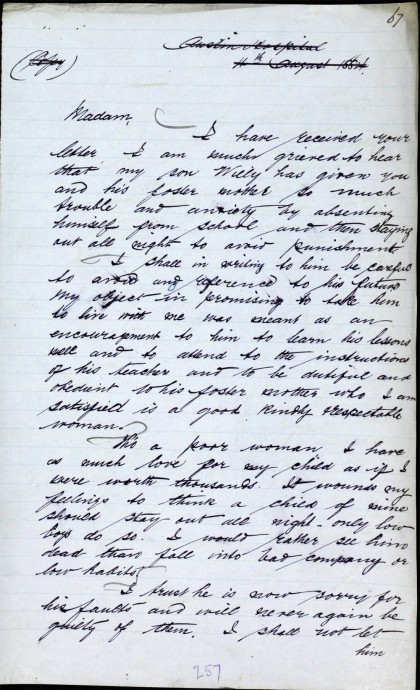 67
Austin Hospital
(Copy)
11th August 1884
Madam,
I have received your
letter I am much grieved to hear
that my son Willy has given you
and his foster mother so much
trouble and anxiety by absenting
himself from school and then staying
out all night to avoid punishment
I shall in writing to him be careful
to avoid any reference to his future
My object in promising to take him
to live with me was meant as an
encouragement to him to learn his lessons
well and to attend to the instructions
of his teacher and to be dutiful and
obedient to his foster mother who I am
satisfied is a good kindly respectable
woman.
As a poor woman I have
as much love for my child as if I
were worth thousands. It wounds my
feelings to think a child of mine
should stay out all night - only low
boys do so. I would rather see him
dead than fall into bad company or
low habits
I trust he is now sorry for
his faults and will never again be
guilty of them. I shall not let
him
257